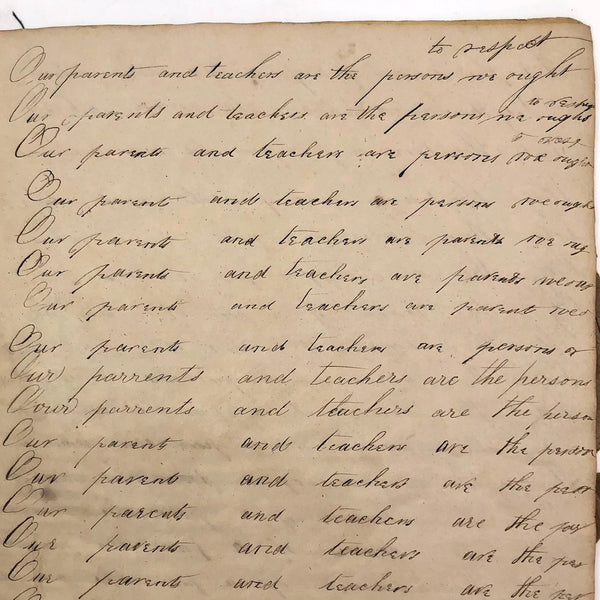 to respect
Our parents and teachers are the persons we ought
to resp
Our parents and teachers are the persons we ought
to resp
Our parents and teachers are persons we ought
Our parent and teachers are persons we ought
Our parents and teachers are parents we oug
Our parents and teachers are parents we oug
Our parents and teachers are parent we o
Our parents and teachers are persons or
Our parrents and teachers are the persons
Oour parrents and teachers are the person
Our parent and teachers are the person
Our parents and teachers are the per
Our parents and teachers are the per
Our parents and teachers are the per
Our parents and teachers are the per